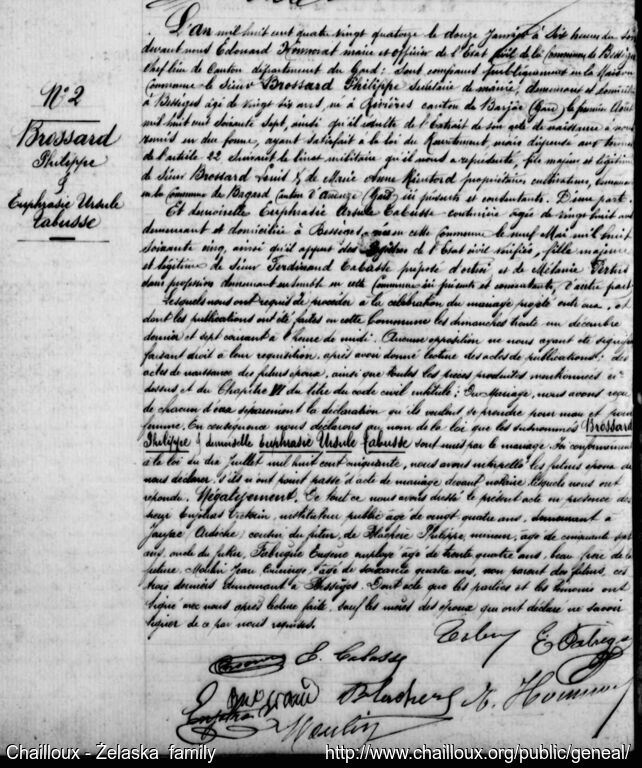 N° 2
Brossard
Philippe
&
Euphrasie Ursule
Cabusse
L'an mil huit cent quatre vingt quatorze le douze Janvier à six heures du soir
devant nous Edouard maire et officier de l'Etat Civil de la Commune de Bessèges
Chef lieu de Canton département du Gard : sont comparus publiquement en la Maison
Commune le Sieur Brossard Philippe Secrétaire de mairie, demeurant et domicilié
à Bessèges âgé de vingt six ans, né à Rivières canton de Barjac (Gard) le premier Août
mil huit cent soixante sept, ainsi qu'il résulte de l'Extrait de son acte de naissance à nous
remis en due forme, ayant satisfait à la loi du Recrutement mais dispensé aux termes
de l'article 22 suivant le livret militaire qu'il nous a représenté, fils majeur et légitime
de Sieur Brossard Louis & de Marie Anne propriétaires cultivateurs, demeurant
en la Commune de Bagard Canton d'Anduze (Gard) ici présents et consentants. D'une part.
Et demoiselle Euphrasie Ursule Cabusse couturière âgée de vingt huit ans
demeurant et domiciliée à Bessèges, née en cette Commune le neuf Mai mil huit cent
soixante cinq, ainsi qu'il appert des Registres de l'Etat civil vérifiés, fille majeure
et légitime de Sieur Ferdinand Cabusse préposé d'octroi et de Mélanie
sans profession demeurant ensemble en cette Commune ici présents et consentants, d'autre part
Lesquels nous ont requis de procéder à la célébration du mariage projeté entre eux, et
dont les publications ont été faites en cette Commune les dimanches trente un décembre
dernier et sept courant à l'heure de midi. Aucune opposition ne nous ayant été signifiée
faisant droit à leur requisition, après avoir donné lecture des actes de publications, des
actes de naissance des futurs époux, ainsi que toutes les pièces produites mentionnées ci-
dessus et du Chapitre VI du titre du code civil intitulé : Du Mariage, nous avons reçu
de chacun d'eux séparément la déclaration qu'ils veulent se prendre pour mari et pour
femme. En conséquence nous déclarons au nom de la loi que les susnommés Brossard
Philippe & demoiselle Euphrasie Ursule Cabusse sont unis par le mariage. En conformément
à la loi du dix Juillet mil huit cent cinquante, nous avons interpellé les futurs époux de
nous déclarer s'ils n'ont point passé d'acte de mariage devant notaire lesquels nous ont
répondu. Négativement. De tout ce nous avons dressé le présent acte en présence des
sieurs instituteur public âgé de vingt quatre ans, demeurant à
(Ardèche) cousin du futur, de Philippe, mineur, âgé de cinquante
ans, oncle du futur, Fabrègue Eugène employé âgé de trente quatre ans, beau frère de la
future, Moulin Jean âgé de soixante quatre ans, non parent des futurs, ces
trois derniers demeurant à Bessèges. Dont acte que les parties et les témoins ont
signé avec nous après lecture faite, sauf les mères des époux qui ont déclaré ne savoir
signer de ce par nous requises.
E. Fabrègue
E. Cabusse
Moulin
Chailloux - Żelaska family
http://www.chailloux.org/public/geneal/